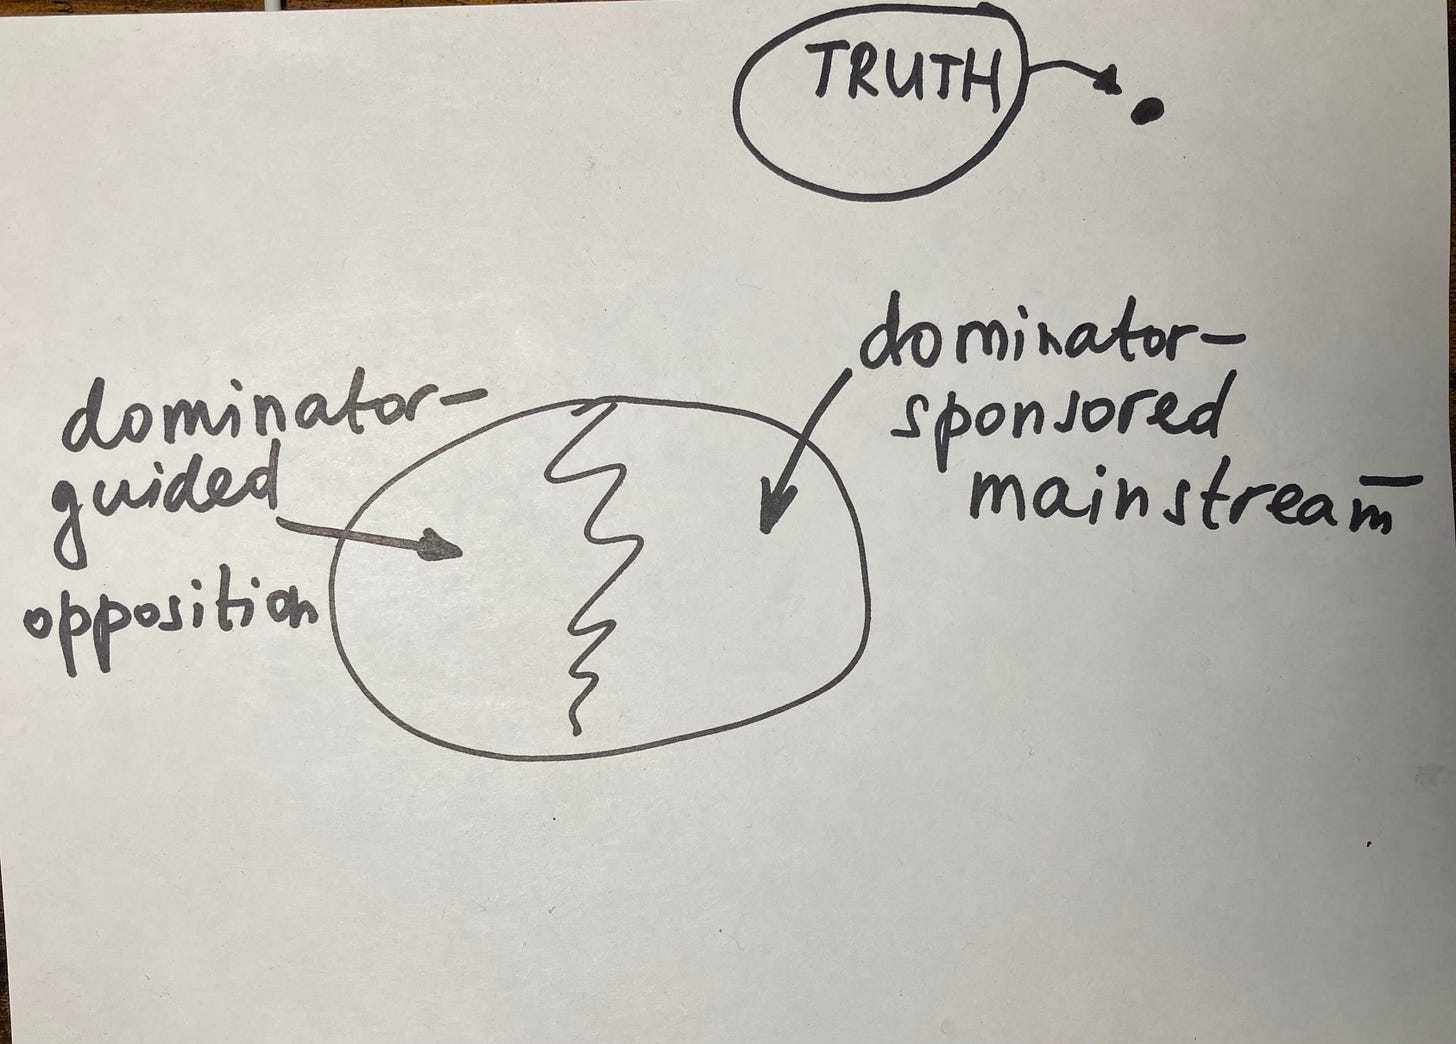 TRUTH
dominator-
sponsored
mainstream
dominator-
guided
opposition